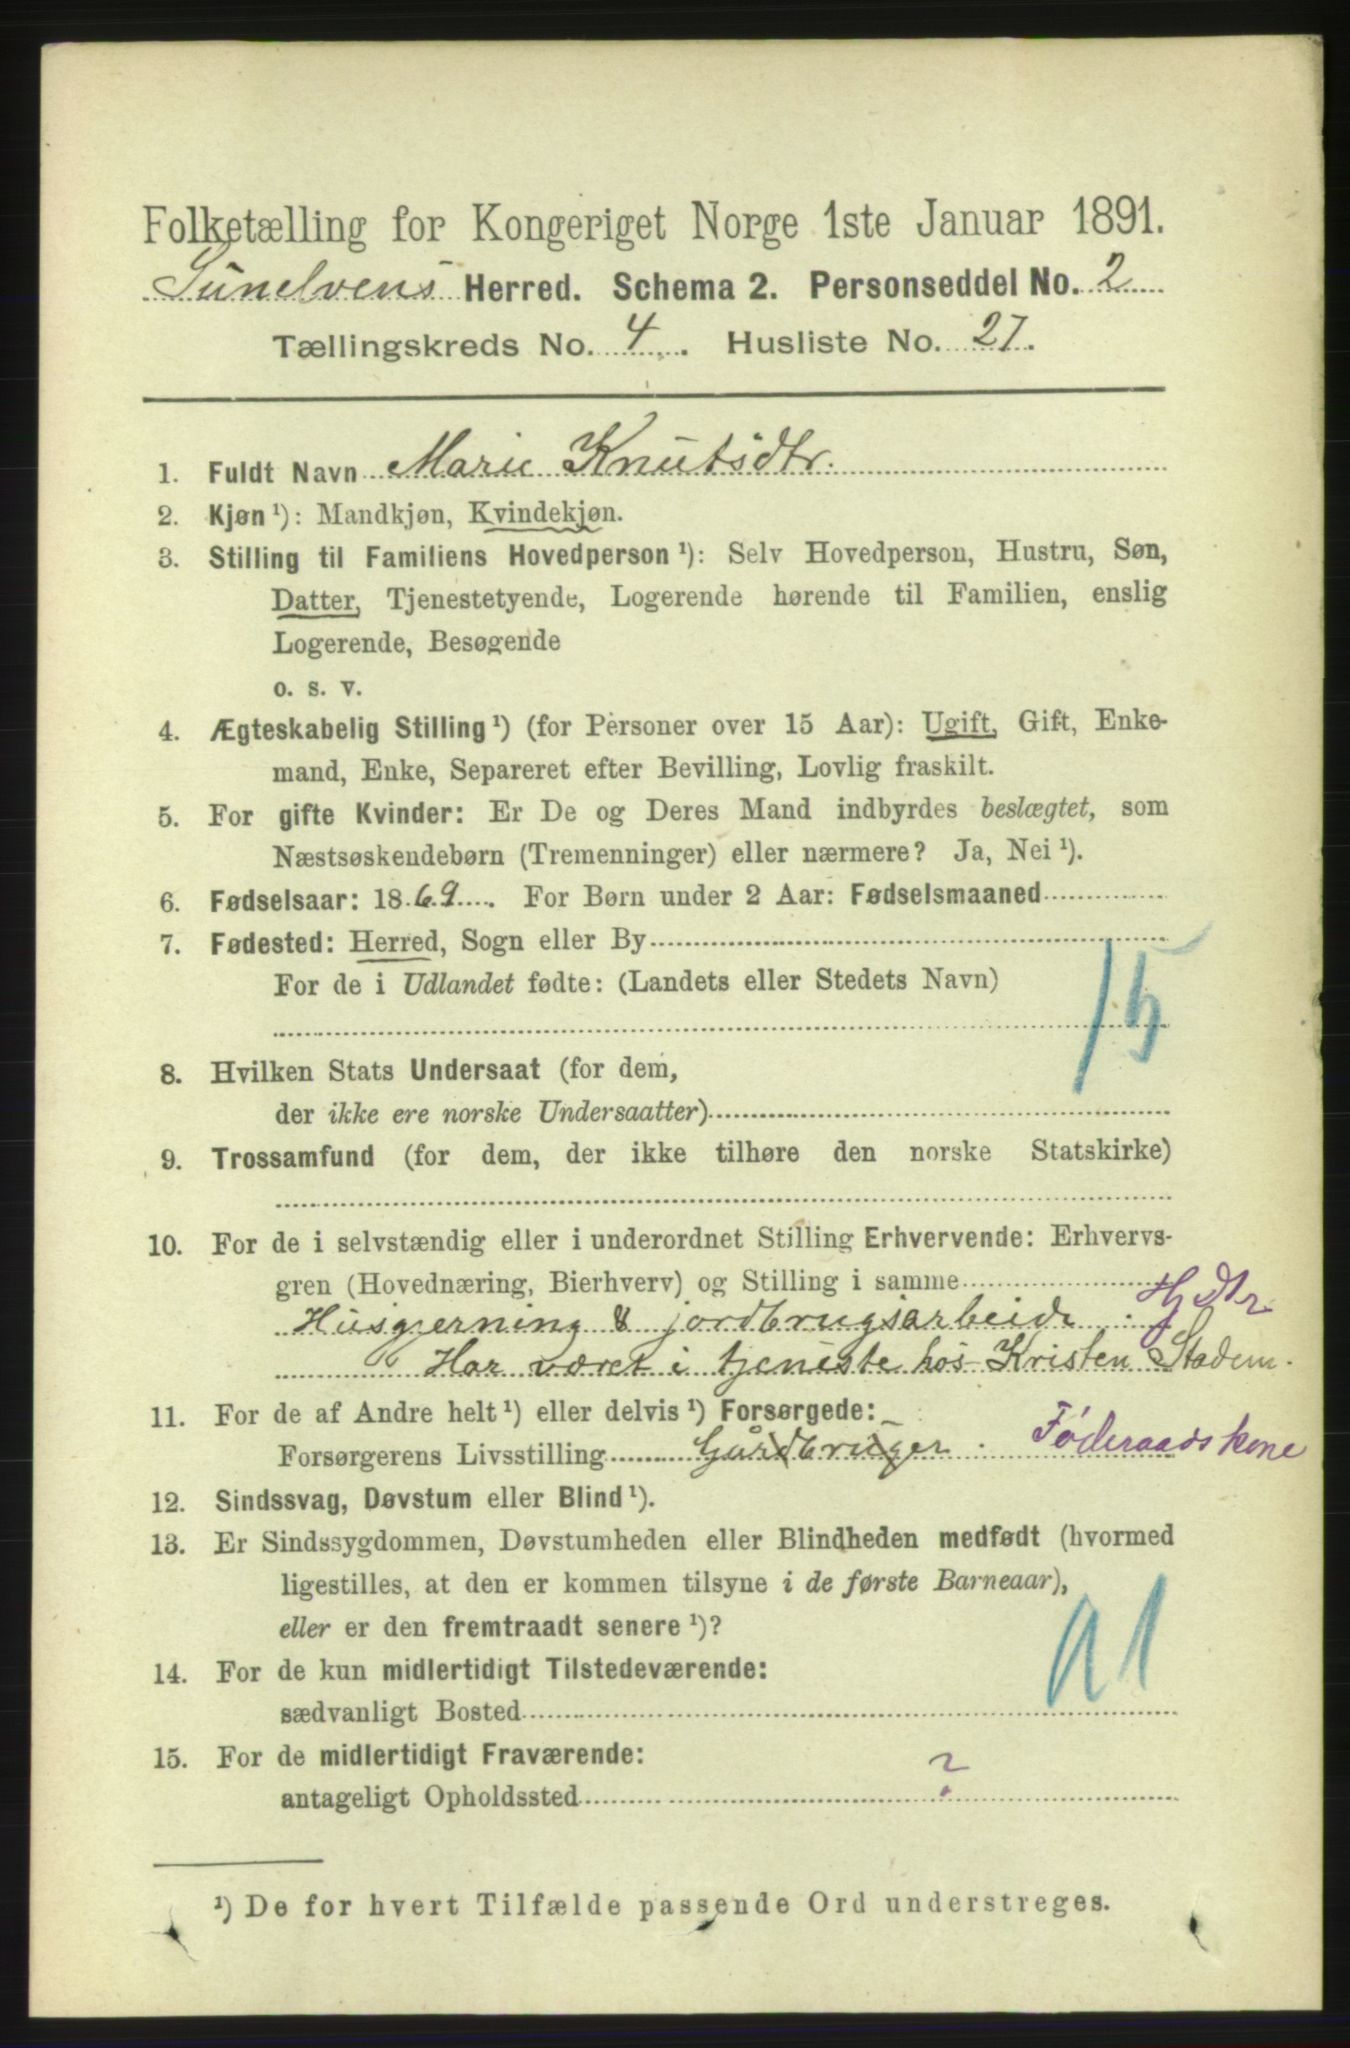 Folketælling for Kongeriget Norge 1ste Januar 1891.
Sunelvens Herred. Schema 2. Personseddel No. 2
Tællingskreds No. 4. Husliste No. 27.
1. Fuldt Navn Marie Knutsdtr.
2. Kjøn ¹): Mandkjøn, Kvindekjøn.
3. Stilling til Familiens Hovedperson ¹): Selv Hovedperson, Hustru, Søn,
Datter, Tjenestetyende, Logerende hørende til Familien, enslig
Logerende, Besøgende
o. s. v.
4. Ægteskabelig Stilling ¹) (for Personer over 15 Aar): Ugift, Gift, Enke-
mand, Enke, Separeret efter Bevilling, Lovlig fraskilt.
5. For gifte Kvinder: Er De og Deres Mand indbyrdes beslægtet, som
Næstsøskendebørn (Tremenninger) eller nærmere? Ja, Nei ¹).
6. Fødselsaar: 1869. For Børn under 2 Aar: Fødselsmaaned
7. Fødested: Herred, Sogn eller By
For de i Udlandet fødte: (Landets eller Stedets Navn)
15
8. Hvilken Stats Undersaat (for dem,
der ikke ere norske Undersaatter)
9. Trossamfund (for dem, der ikke tilhøre den norske Statskirke)
10. For de i selvstændig eller i underordnet Stilling Erhvervende: Erhvervs-
gren (Hovednæring, Bierhverv) og Stilling i samme
Husgjerning & jordbrugsarbeide. Hj Dtr
Har været i tjeneste hos Kristen Stadem.
11. For de af Andre helt ¹) eller delvis ¹) Forsørgede:
Forsørgerens Livsstilling Gårdbruger. Føderaadskone
12. Sindssvag, Døvstum eller Blind ¹).
13. Er Sindssygdommen, Døvstumheden eller Blindheden medfødt (hvormed
ligestilles, at den er kommen tilsyne i de første Barneaar),
eller er den fremtraadt senere ¹)?
91
14. For de kun midlertidigt Tilstedeværende:
sædvanligt Bosted
15. For de midlertidigt Fraværende:
antageligt Opholdssted ?
¹) De for hvert Tilfælde passende Ord understreges.